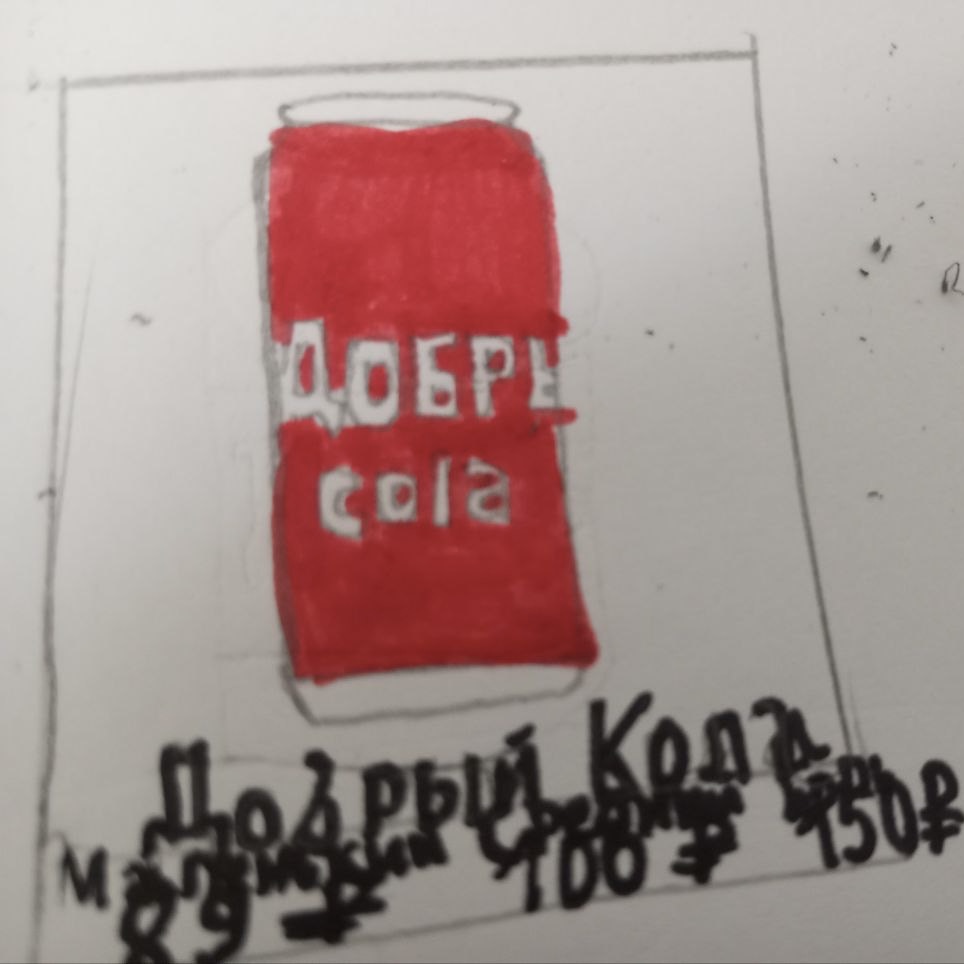 ДОБРЫ
cola
Добрый Кола
Маленький Средний
89 ₽ 100 ₽ 150₽